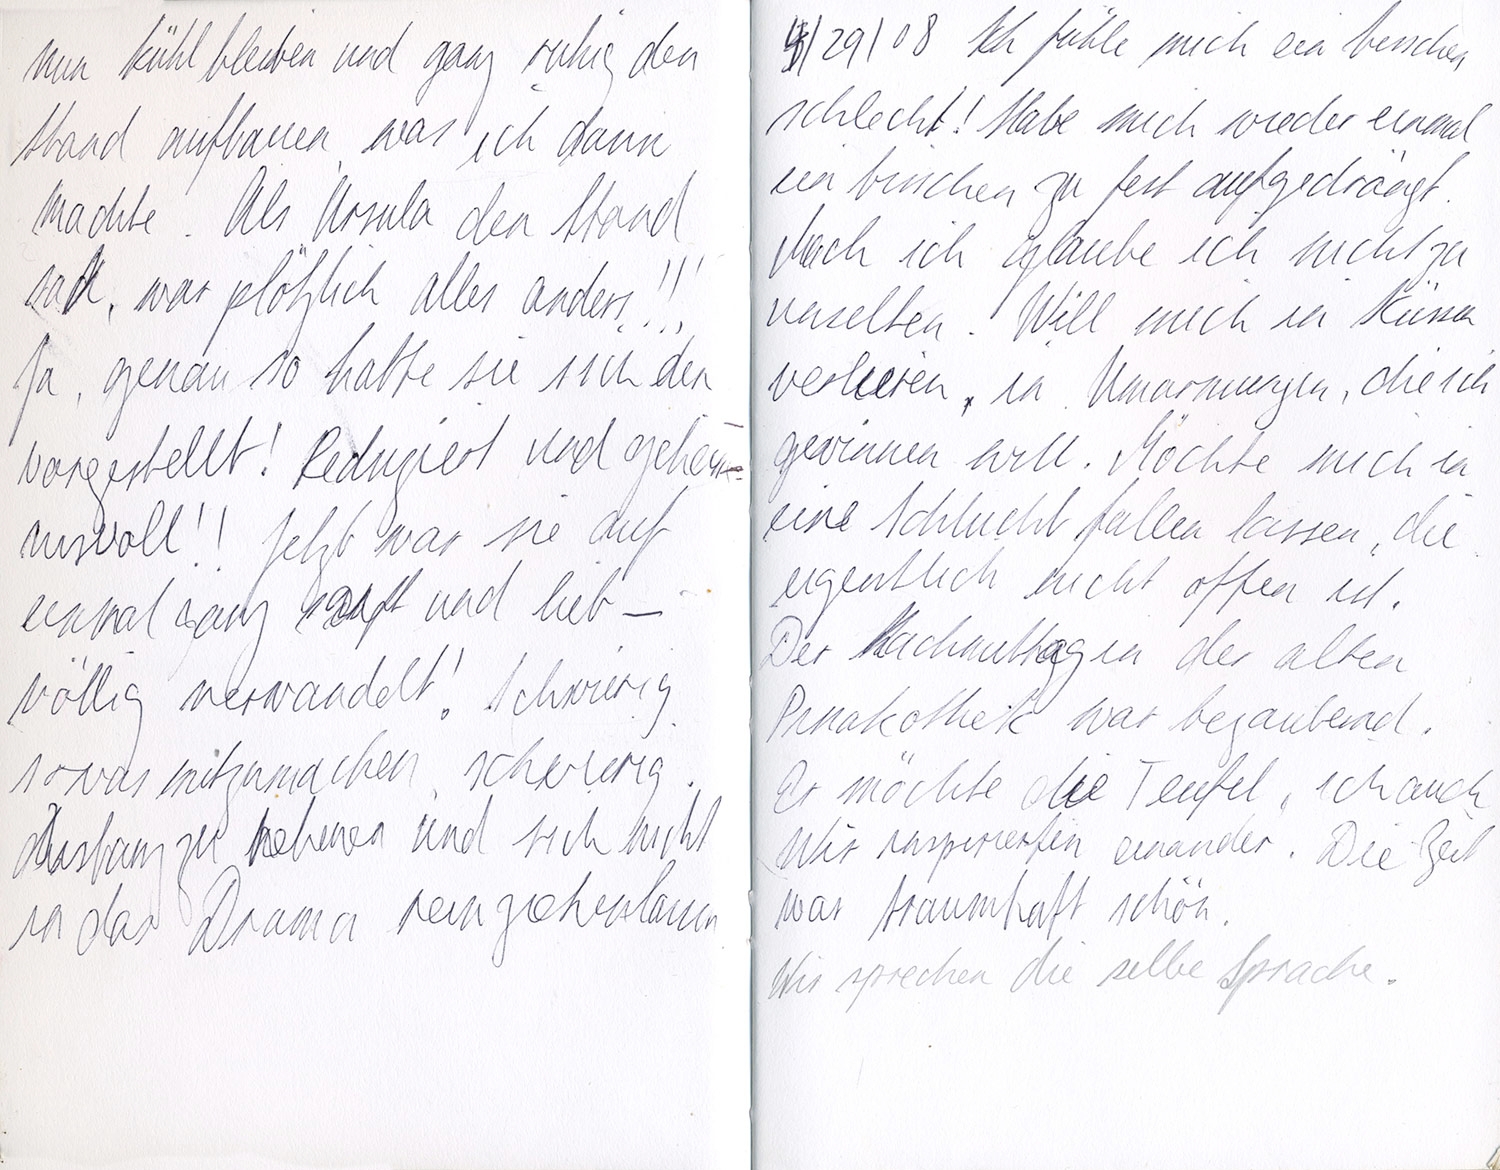 nun kühl bleiben und ganz ruhig den
Stand aufbauen, was ich dann
machte. Als Ursula den Stand
sah, war plötzlich alles anders!!!
Ja, genau so hatte sie sich den
vorgestellt! Reduziert und geheim-
nisvoll!! Jetzt war sie auf
einmal ganz sanft und lieb –
völlig verwandelt! Schwierig
sowas mitzumachen, schwierig.
Distanz zu nehmen und sich nicht
in das Drama reinziehen lassen
/29/08 Ich fühle mich ein bisschen
schlecht! Habe mich wieder einmal
ein bisschen zu fest aufgedrängt.
ich glaube ich nicht zu
unselten. Will mich in Küssen
verlieren, in Umarmungen, die ich
gewinnen will. Möchte mich in
eine Schlucht fallen lassen, die
eigentlich nicht offen ist.
Der Nachmittag in der alten
Pinakothek war bezaubernd.
Er möchte die Teufel, ich auch
Wir inspirierten einander. Die Zeit
war traumhaft schön.
Wir sprechen die selbe Sprache.